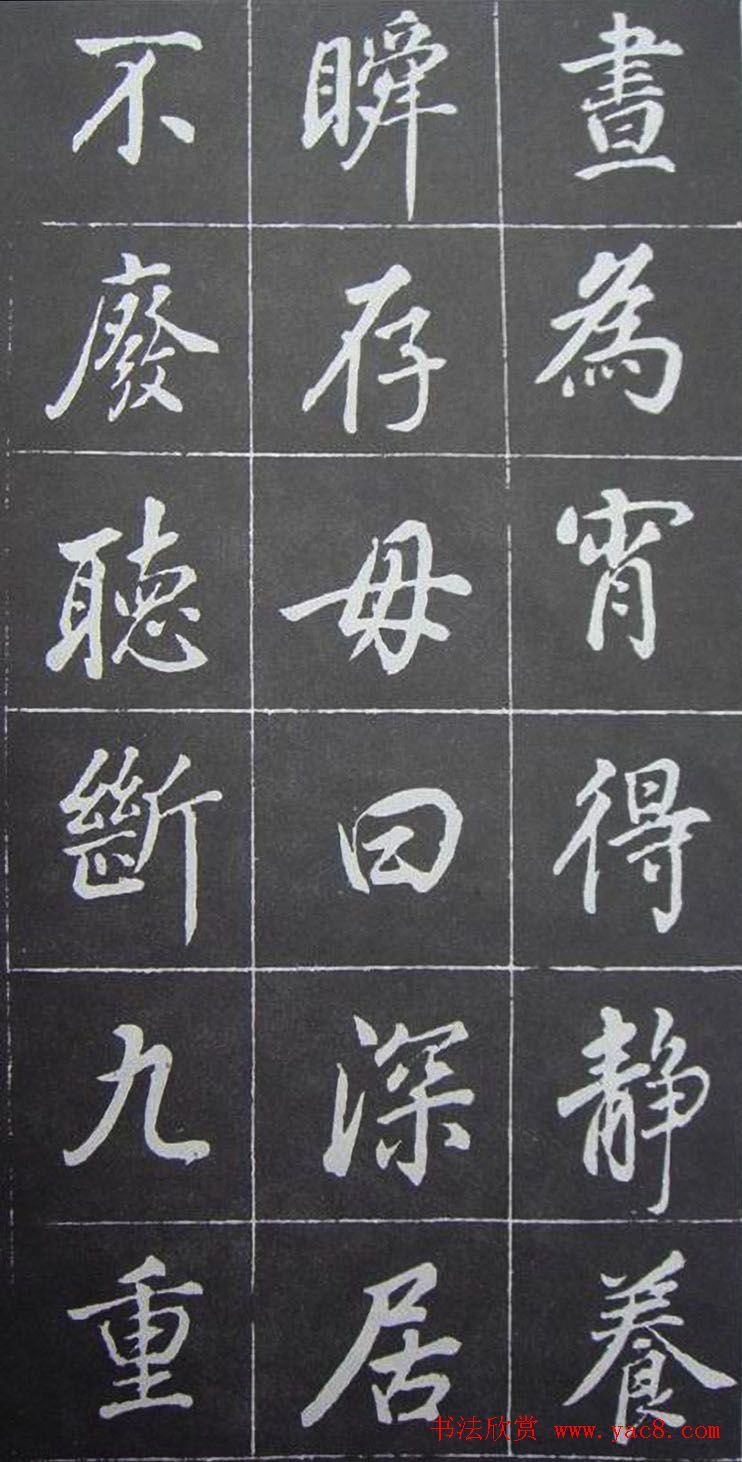 晝為宵得静養
瞬存毋曰深居
不廢聽斷九重
书法欣赏 www.yac8.com